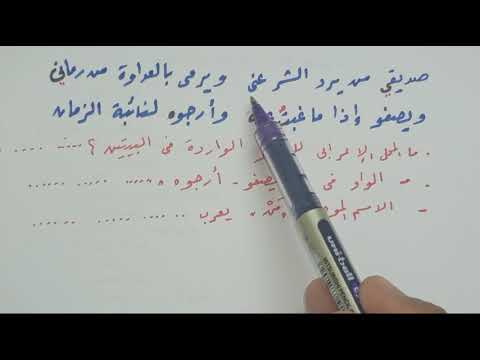 صديقي من يرد الشر عني ويرمي بالعداوة من رماني
ويصفو إذا ما غبتُ وأرجوه لنائبة الزمان
. ما المحل الإعرابي الواردة في البيتين ؟ .......
- الواو في يصفو - أرجوه ، ....... ..... .......
- الاسم يعرب ....... ..... .......
uni-ball